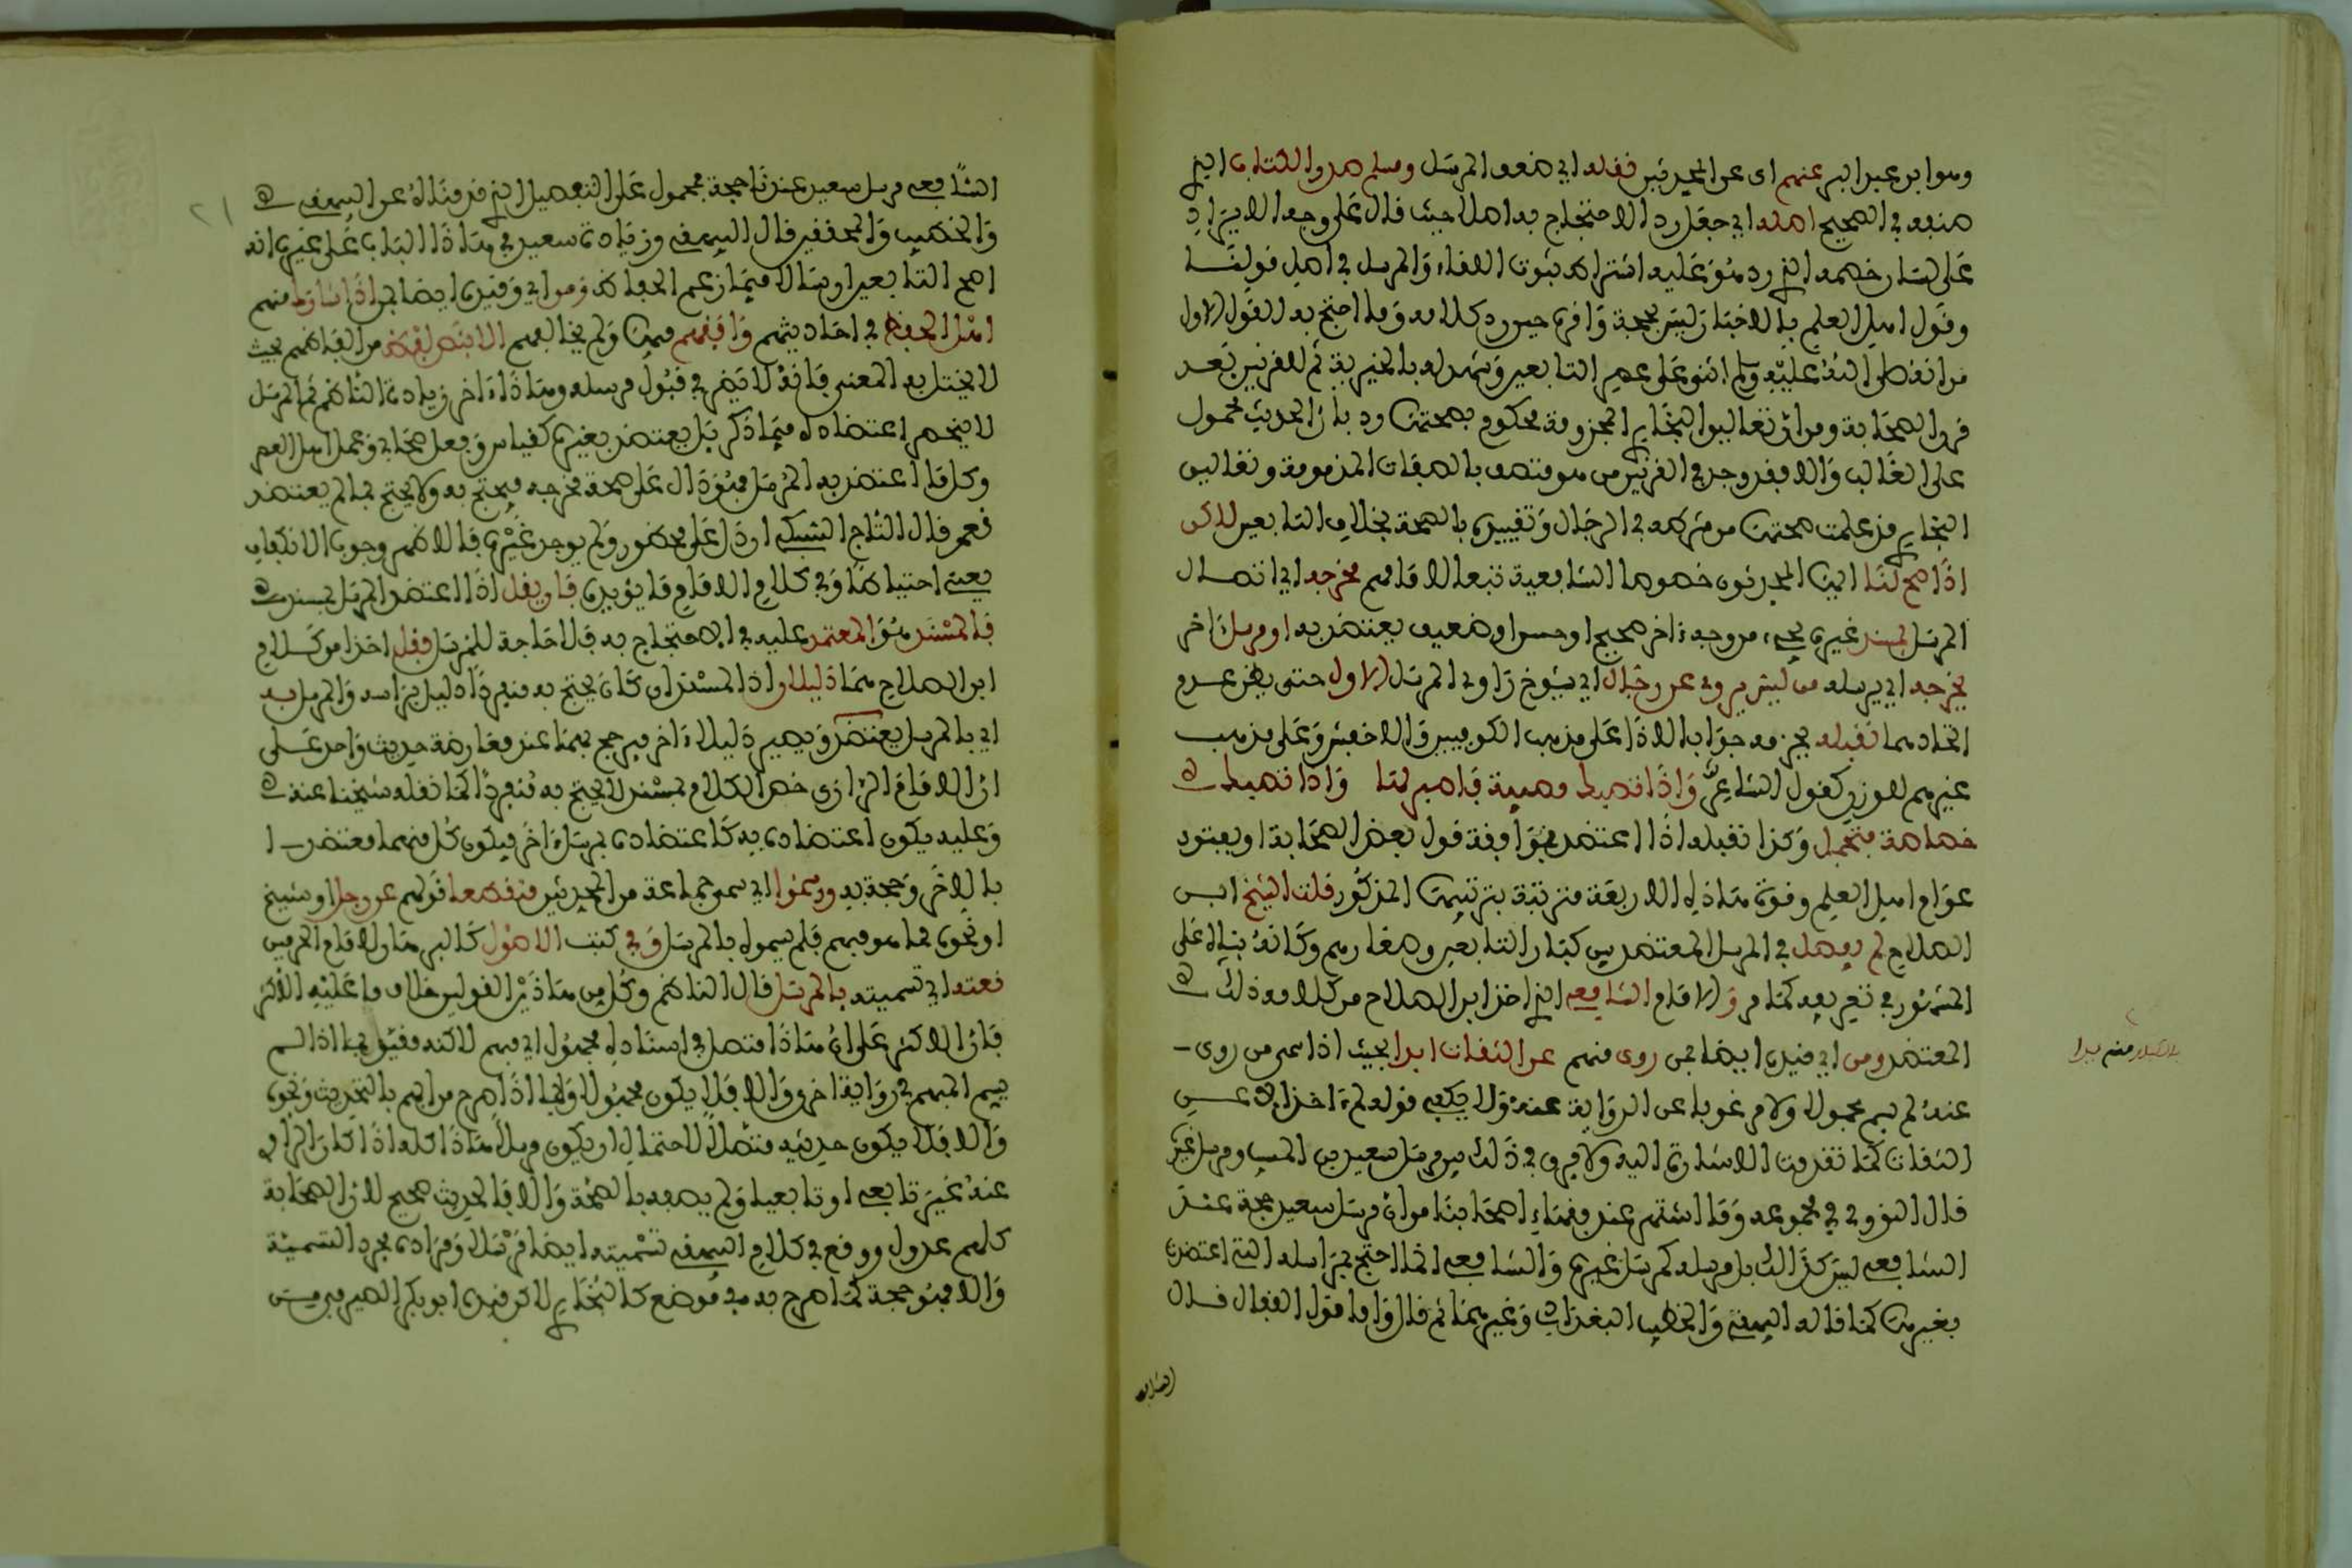 وهو ابن عبد البر عنهم اى عن المحدثين فقله اي ضعف المرسل ومسلم صدر الكتاب الذي
صنفه في الصحيح اصله اي جعل رد الاحتجاج به اصلا حيث قال على وجه الايراد
على لسان خصمه الذي رد هو عليه اشتراط ثبوت اللقاء والمرسل في اصل قولنا
وقول اهل العلم بالاخبار ليس بحجة واقره حين رد كلامه وما احتج به للقول الاول
من انه صلى الله عليه وسلم اثنى على عصر التابعين وشهد له بالخيرية ثم للقرنين بعد
قرن الصحابة ومن ان تعاليق البخاري المجزومة محكوم بصحتها رد بان الحديث محمول
على الغالب والا فقد وجد في القرنين من هو متصف بالصفات المذمومة وتعاليق
البخاري قد علمت صحتها من شرطه في الرجال وتقييده بالصحة بخلاف التابعين لاكن
اذا صح لنا ايها المحدثون خصوصا الشافعية تبعا لامامهم مخرجه اي اتصال
المرسل بمسند غيره يجيء من وجه ءاخر صحيح او حسن او ضعيف يعتضد به او مرسل ءاخر
يخرجه اي يرسله من ليس يروى عن رجال اي شيوخ راوي المرسل الاول حتى يظن عدم
اتحادهما نقبله بجزمه جوابا للاذا على مذهب الكوفيين والاخفش وعلى مذهب
غيرهم للوزن كقول الشاعر واذا تصبك مصيبة فاصبر لها واذا تصبك
خصاصة فتجمل وكذا نقبله اذا اعتضد بموافقة قول بعض الصحابة او بفتوى
عوام اهل العلم وقوة هاذه الاربعة مترتبة بترتيبها المذكور قلت الشيخ ابن
الصلاح لم يفصل في المرسل المعتضد بين كبار التابعين وصغارهم وكانه بناه على
المشهور في تعريفه كما مر والامام الشافعي الذي اخذ ابن الصلاح من كلامه ذلك
المعتضد ومن اي قيده ايضا بمن روى منهم عن الثقات ابدا بحيث اذا سمى من روى
عنه لم يسم مجهولا ولا مرغوبا عن الرواية عنه ولا يكفي قوله لم ءاخذ الا عن
الثقات كما تقدمت الاشارة اليه ولا فرق في ذلك بين مرسل سعيد بن المسيب ومرسل غيره
قال النووي في مجموعه وما اشتهر عند فقهاء اصحابنا من ان مرسل سعيد حجة عند
الشافعي ليس كذالك بل مرسله كمرسل غيره والشافعي انما احتج بمراسله التي اعتضدت
بغيرها كما قاله البيهقي والخطيب البغدادي وغيرهما ثم قال واما قول القفال قال
الشافعي
منهم بدا
الشافعي مرسل سعيد عندنا حجة محمول على التفصيل الذي قدمناه عن البيهقي
والخطيب والمحققين قال البيهقي وزيادة سعيد في هاذا الباب على غيره انه
اصح التابعين ارسالا فيما زعم الحفاظ ومن اي وقيده ايضا بمن اذا شارك منهم
اهل الحفظ في احاديثهم وافقهم فيها ولم يخالفهم الا بنقص لفظ من الفاظهم بحيث
لا يختل به المعنى فانه لا يضر في قبول مرسله وهاذا ءاخر زيادة الناظم ثم المرسل
لا ينحصر اعتضاده فيما ذكر بل يعتضد بغيره كقياس وفعل صحابي وعمل اهل العصر
وكل ما اعتضد به المرسل فهو دال على صحة مخرجه فيحتج به ولا يحتج بما لم يعتضد
نعم قال التاج السبكي ان دل على محظور ولم يوجد غيره فالاظهر وجوب الانكفاف
يعني احتياطا وفي كلام الامام ما يؤيده فان يقل اذا اعتضد المرسل بمسند
فالمسند هو المعتمد عليه في الاحتجاج به فلا حاجة للمرسل فقل اخذا من كلام
ابن الصلاح هما دليلان اذ المسند ان كان يحتج به منفردا دليل براسه والمرسل به
اي بالمرسل يعتضد ويصير دليلا ءاخر فيرجح بهما عند معارضة حديث واحد على
ان الامام الرازي خص الكلام بمسند لا يحتج به منفردا كما نقله شيخنا عنه
وعليه يكون اعتضاده به كاعتضاده بمرسل ءاخر فيكون كل منهما معتضدا
بالاخر وحجة به ورسموا اي سمى جماعة من المحدثين منقطعا قولهم عن رجل او شيخ
او نحوه مما هو مبهم فلم يسموه بالمرسل وفي كتب الاصول كالبرهان لامام الحرمين
نعته اي تسميته بالمرسل قال الناظم وكل من هاذين القولين خلاف ما عليه الاكثر
فان الاكثر على ان هاذا متصل في اسناده مجهول اي مبهم لاكنه مقيد بما اذا لم
يسم المبهم في رواية اخرى والا فلا يكون مجهولا وبما اذا صرح من ابهم بالتحديث ونحوه
والا فلا يكون حديثه متصلا لاحتمال ان يكون مرسلا هاذا كله اذا كان الراوي
عنه غير تابعي او تابعيا ولم يصفه بالصحبة والا فالحديث صحيح لان الصحابة
كلهم عدول ووقع في كلام البيهقي تسميته ايضا مرسلا ومراده مجرد التسمية
والا فهو حجة كما صرح به في موضع كالبخاري لاكن قيده ابو بكر الصيرفي من